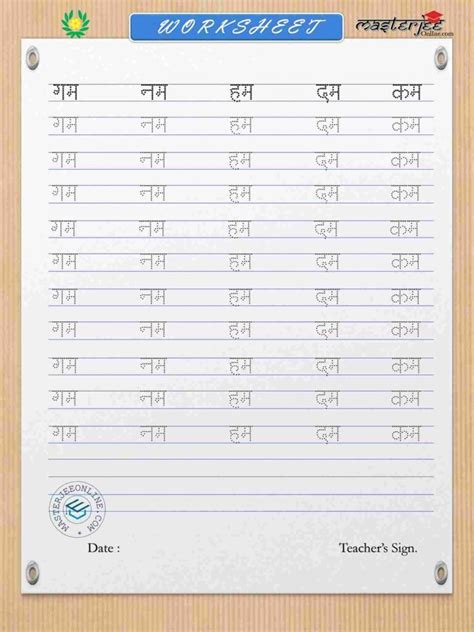 WORKSHEET
masterjee
Online.com
गम नम हम दम कम
गम नम हम दम कम
गम नम हम दम कम
गम नम हम दम कम
गम नम हम दम कम
गम नम हम दम कम
गम नम हम दम कम
गम नम हम दम कम
गम नम हम दम कम
गम नम हम दम कम
गम नम हम दम कम
MASTERJEEONLINE.COM
Date : Teacher's Sign.